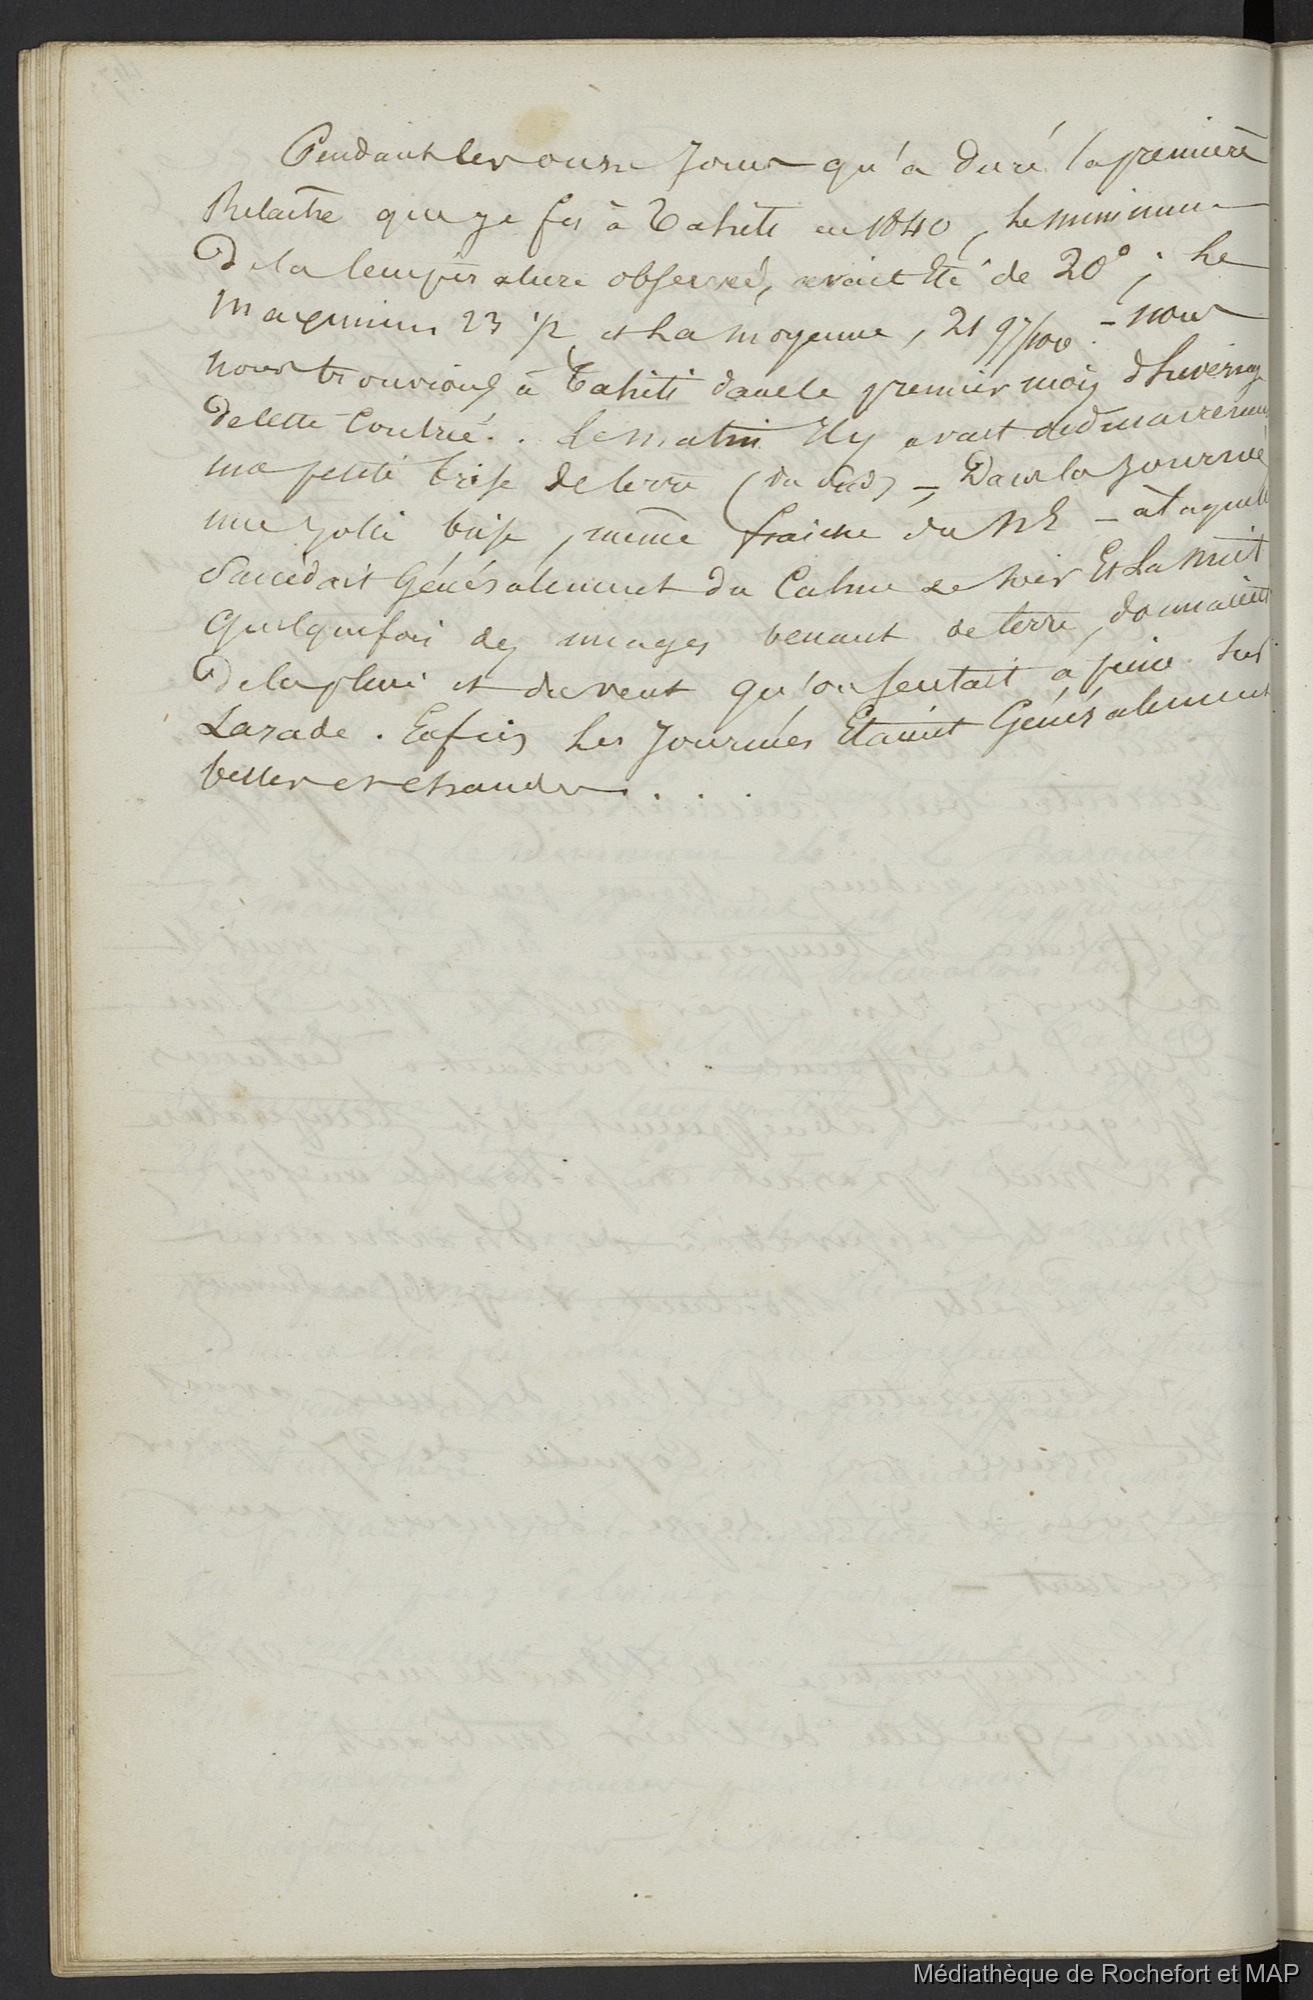 Pendant les onze Jours qu'a duré la première
Relache que je fis à Tahiti en 1840, Le minimum
De la température observé, avait été de 20° ; Le
Maximum 23 1/2 et La moyenne, 21 97/100. – nous
nous trouvions à Tahiti dans le premier mois d'hivernage
De cette Contrée. . Le matin Il y avait ordinairement
une petite brise de terre (du Sud) – Dans la Journée
une jolie brise, même fraiche du NE – à laquelle
Succédait Généralement du Calme le soir Et La Nuit
Quelquefois des nuages venant de terre, donnaient
De la pluie et du vent qu'on sentait à peine sur
La rade. Enfin Les Journées Etaient Généralement
belles et chaudes . . . .
Médiathèque de Rochefort et MAP